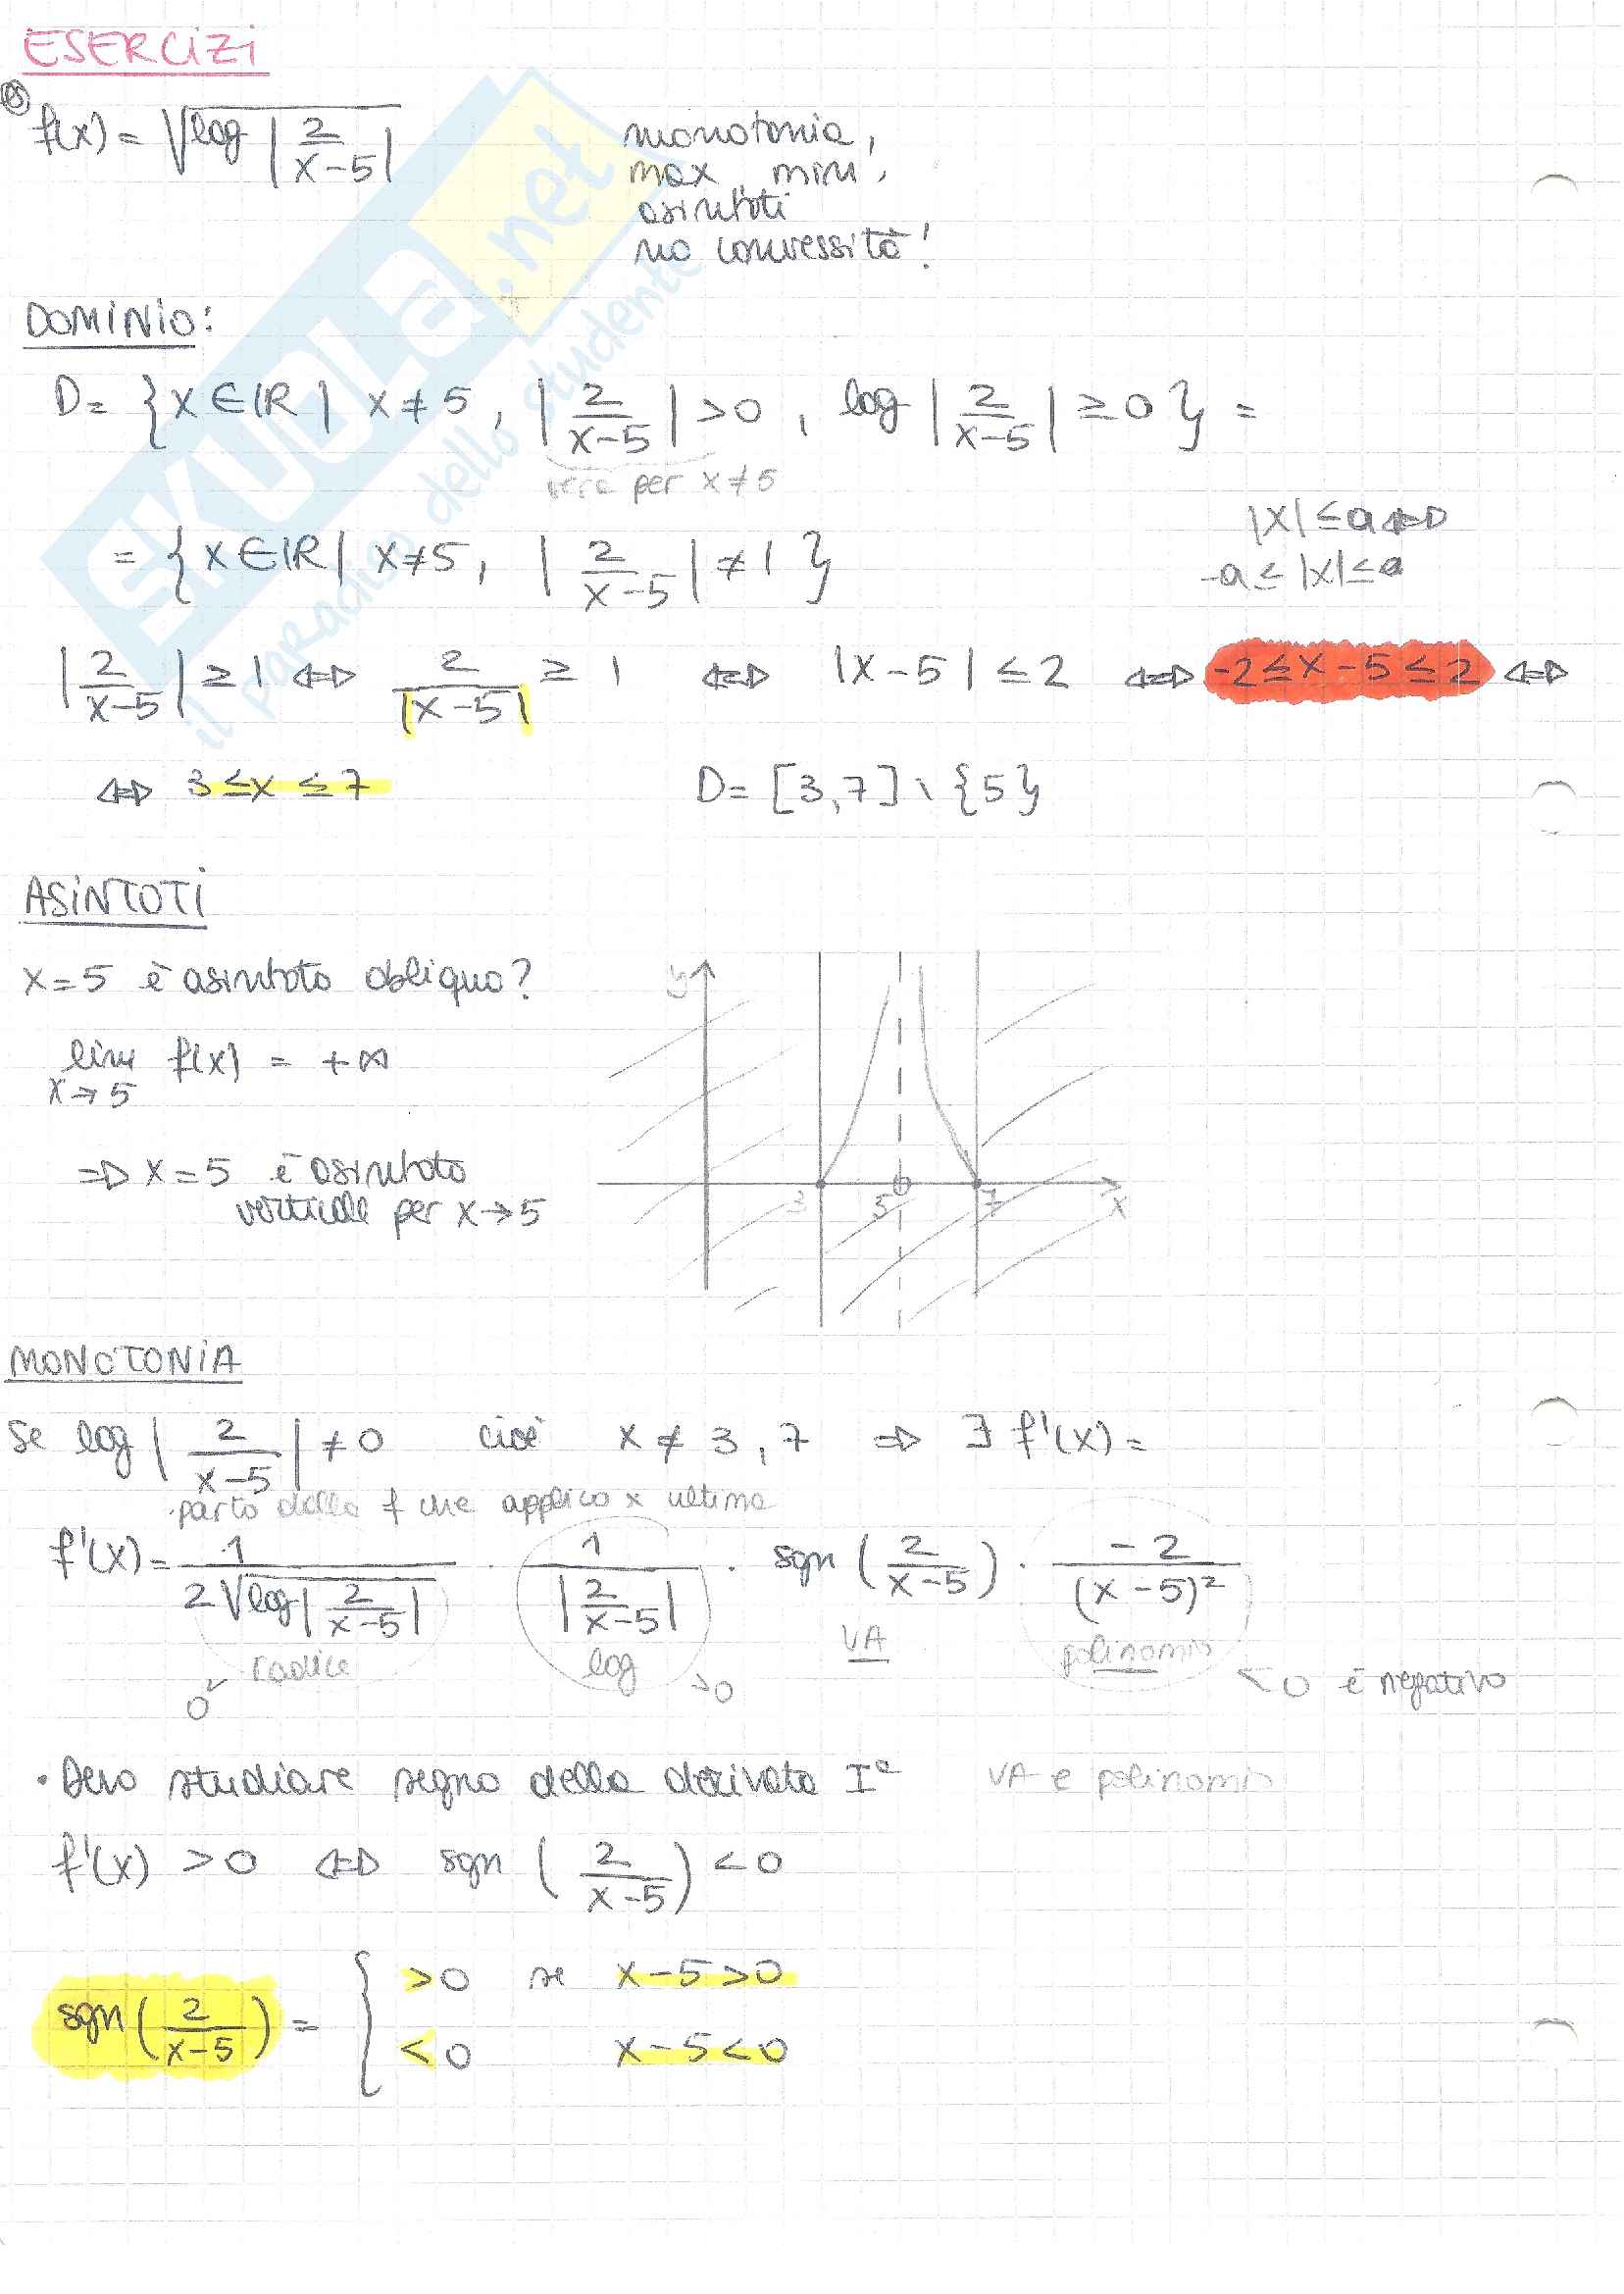 ESERCIZI
f(x) = √log |2/(x-5)|
monotonia,
max, min,
asintoti
no convessità!
DOMINIO:
D = {x ∈ IR | x ≠ 5, |2/(x-5)| > 0, log |2/(x-5)| ≥ 0} =
vera per x ≠ 5
= {x ∈ IR | x ≠ 5, |2/(x-5)| ≠ 1}
|x| ≤ a ⇔
-a ≤ |x| ≤ a
|2/(x-5)| ≥ 1 ⇔ 2/|x-5| ≥ 1 ⇔ |x-5| ≤ 2 ⇔ -2 ≤ x-5 ≤ 2 ⇔
⇔ 3 ≤ x ≤ 7 D = [3,7] \ {5}
ASINTOTI
x = 5 è asintoto obliquo?
lim f(x) = +∞
x→5
⇒ x = 5 è asintoto
verticale per x→5
y
3 5 7 x
MONOTONIA
Se log |2/(x-5)| ≠ 0 cioè x ≠ 3, 7 ⇒ ∃ f'(x) =
parto dalla f che applico x ultima
f'(x) = 1/(2√log|2/(x-5)|) · 1/|2/(x-5)| · sgn (2/(x-5)) · -2/(x-5)²
radice log VA polinomio
0< >0 <0 è negativo
• Devo studiare segno della derivata Iª VA e polinomio
f'(x) > 0 ⇔ sgn (2/(x-5)) < 0
sgn (2/(x-5)) = { >0 se x-5>0
<0 x-5<0
SKUOLA.net
il paradiso dello studente